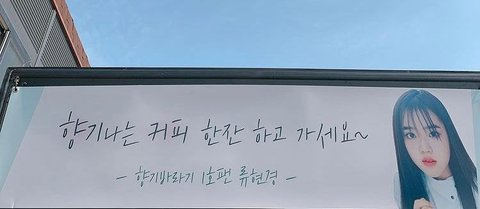 향기나는 커피 한잔 하고 가세요~
- 향기바라기 1호팬 류현경 -